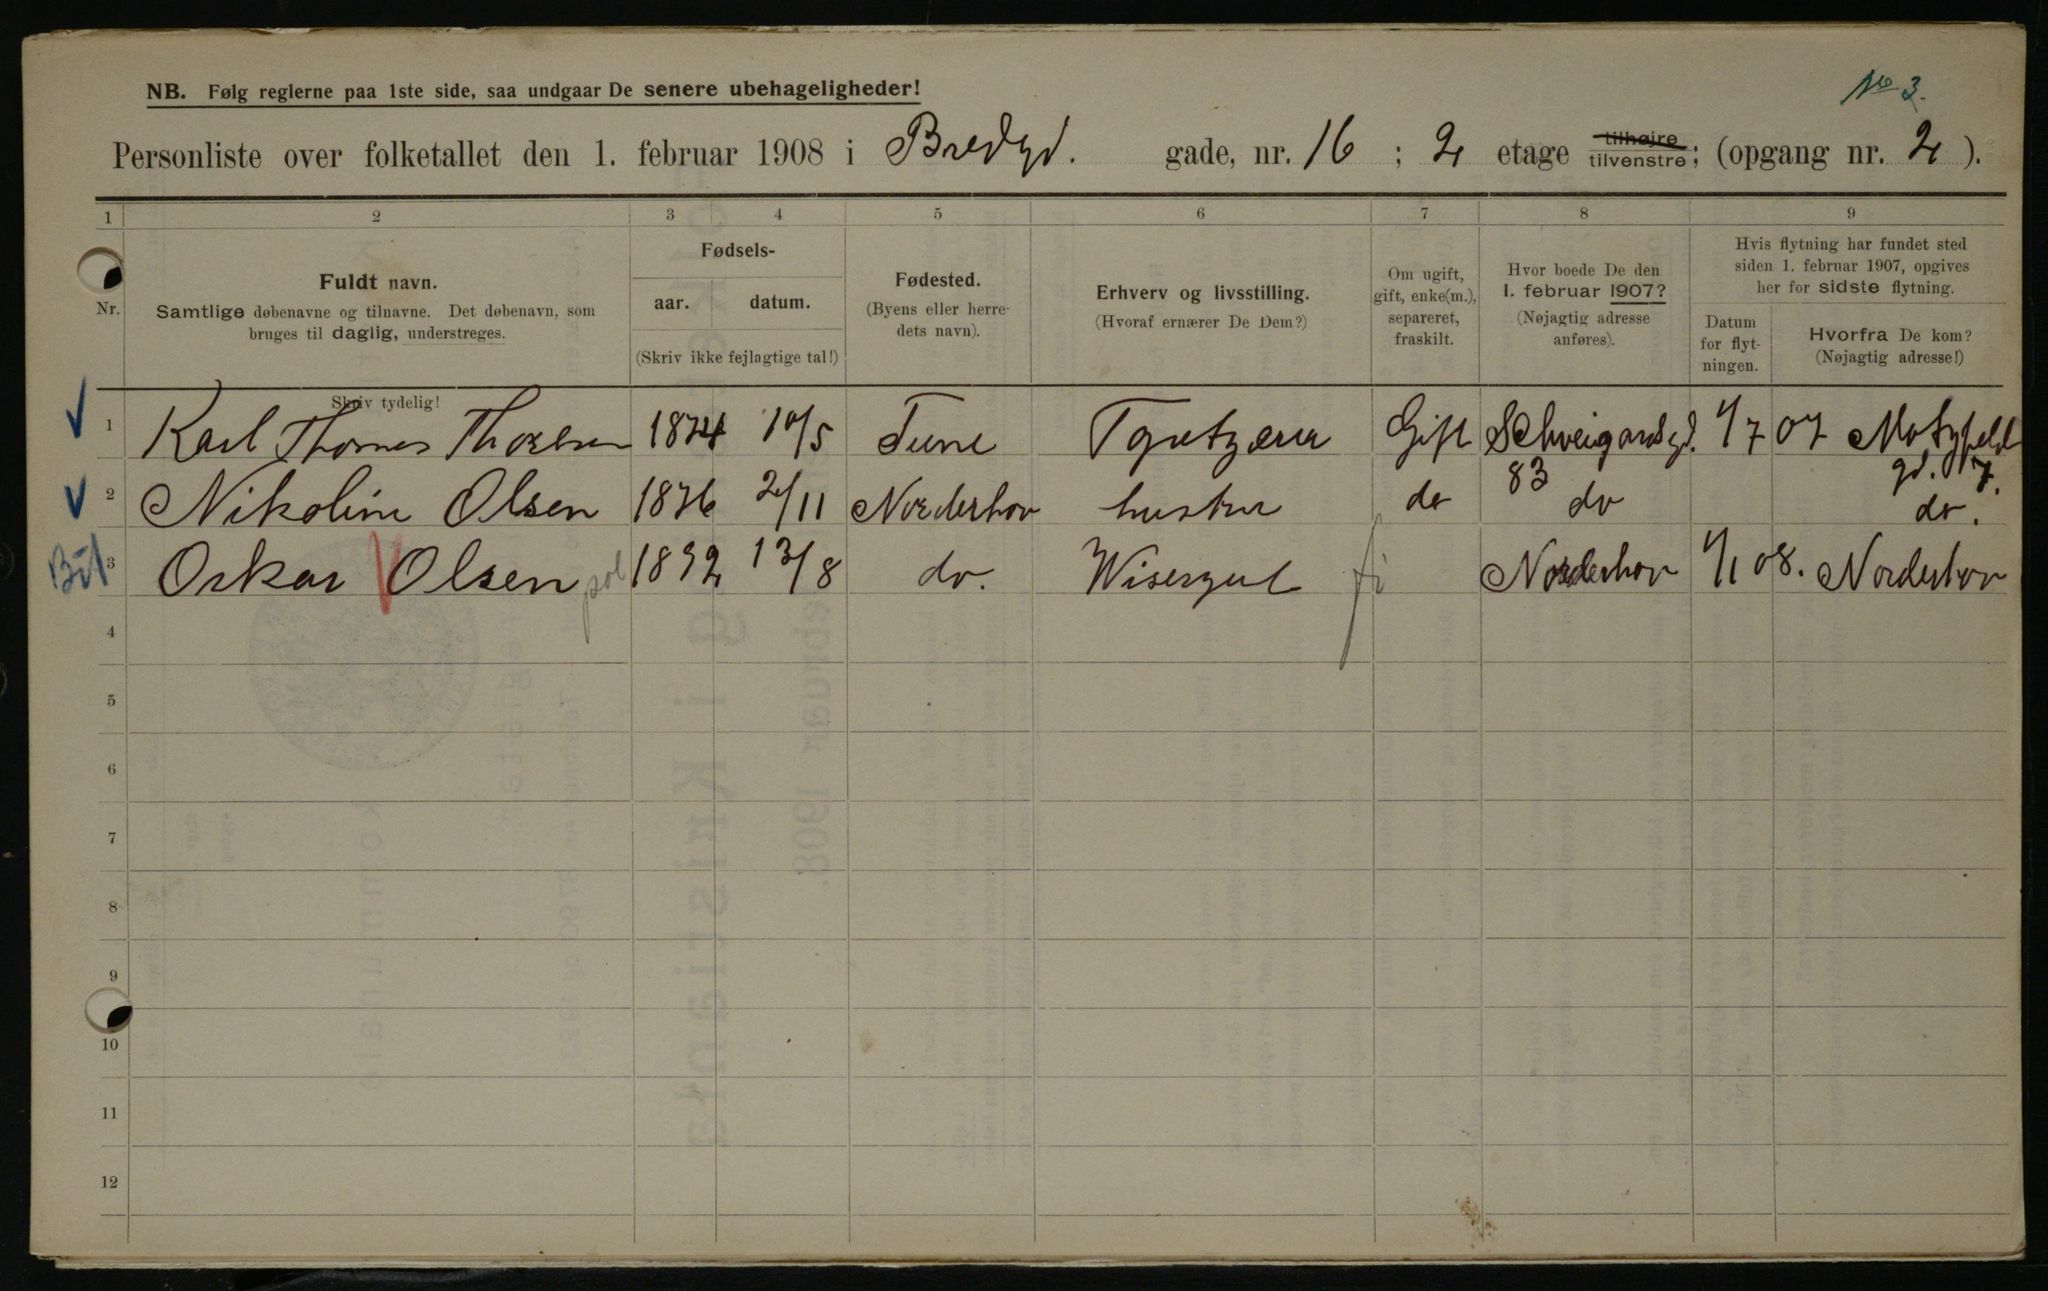 No 3.
NB. Følg reglerne paa 1ste side, saa undgaar De senere ubehageligheder!
Personliste over folketallet den 1. februar 1908 i Bredgd. gade, nr. 16 ; 2 etage tilhøjre tilvenstre; (opgang nr. 2 ).
1 2 3 4 5 6 7 8 9
Nr.
Fuldt navn.
Samtlige døbenavne og tilnavne. Det døbenavn, som
bruges til daglig, understreges.
Skriv tydelig!
Fødsels-
aar. datum.
(Skriv ikke fejlagtige tal!)
Fødested.
(Byens eller herre-
dets navn).
Erhverv og livsstilling.
(Hvoraf ernærer De Dem?)
Om ugift,
gift, enke(m.),
separeret,
fraskilt.
Hvor boede De den
1. februar 1907?
(Nøjagtig adresse
anføres).
Hvis flytning har fundet sted
siden 1. februar 1907, opgives
her for sidste flytning.
Datum
for flyt-
ningen.
Hvorfra De kom?
(Nøjagtig adresse!)
1 Karl Thomas Thorsen 1874 10/5 Tune Gift Schveigaardsgd. 83 1/7 07 Motzfeld gd. 7.
2 Nikoline Olsen 1876 2/11 Norderhov hustru do do do.
3 Oskar Olsen 1892 13/8 do. Visergut Norderhov 1/1 08. Norderhov
4
5
6
7
8
9
10
11
12